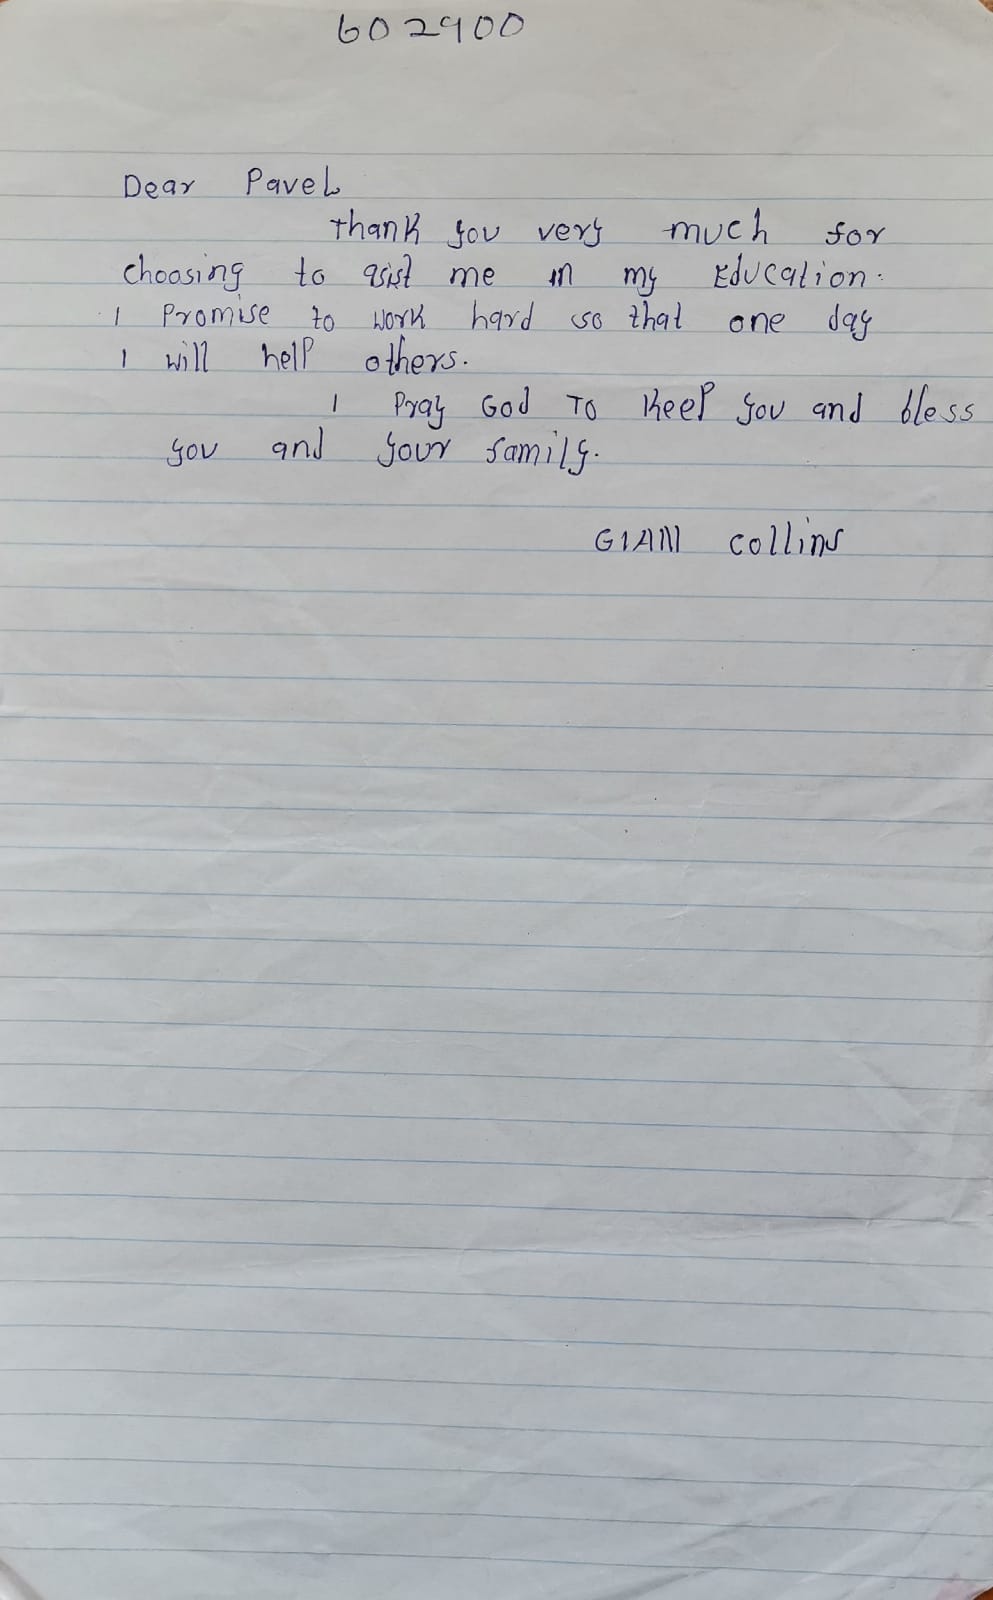 602900
Dear Pavel
thank you very much for
choosing to asist me in my Education.
I Promise to work hard so that one day
I will help others.
I Pray God To Keep you and bless
you and your family.
Collins